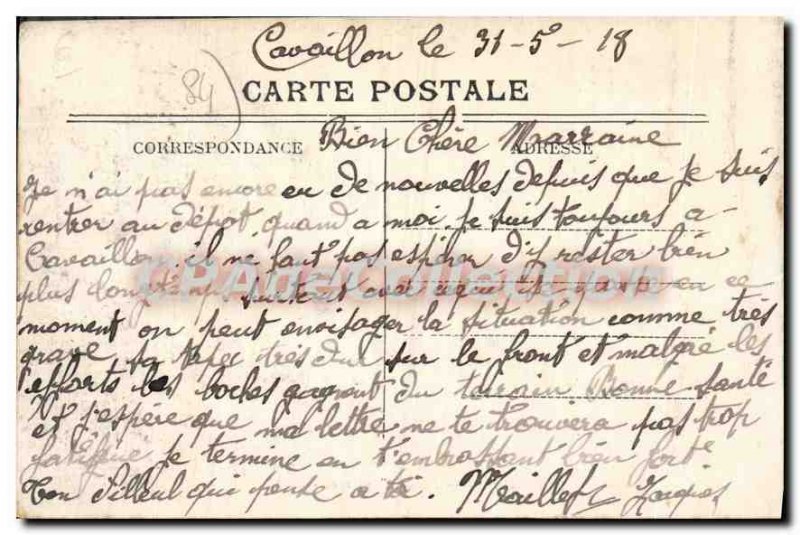 Cavaillon le 31-5-18
84
CARTE POSTALE
CORRESPONDANCE
ADRESSE
Bien Chère Marraine
Je n'ai pas encore eu de nouvelles depuis que je suis
rentrer au dépot quand a moi je suis toujours a
Cavaillon il ne faut pas espérer d'y rester bien
plus longtemps surtout avec en ce
moment on peut envisager la situation comme très
grave sa très dur sur le front et malgré les
efforts les boches gagnent du terrain Bonne santé
et j'espere que ma lettre ne te trouvera pas trop
fatigué je termine en t'embrassant bien fort
Ton filleul qui pense a toi. Maillet Jacques
CPAdeCollection